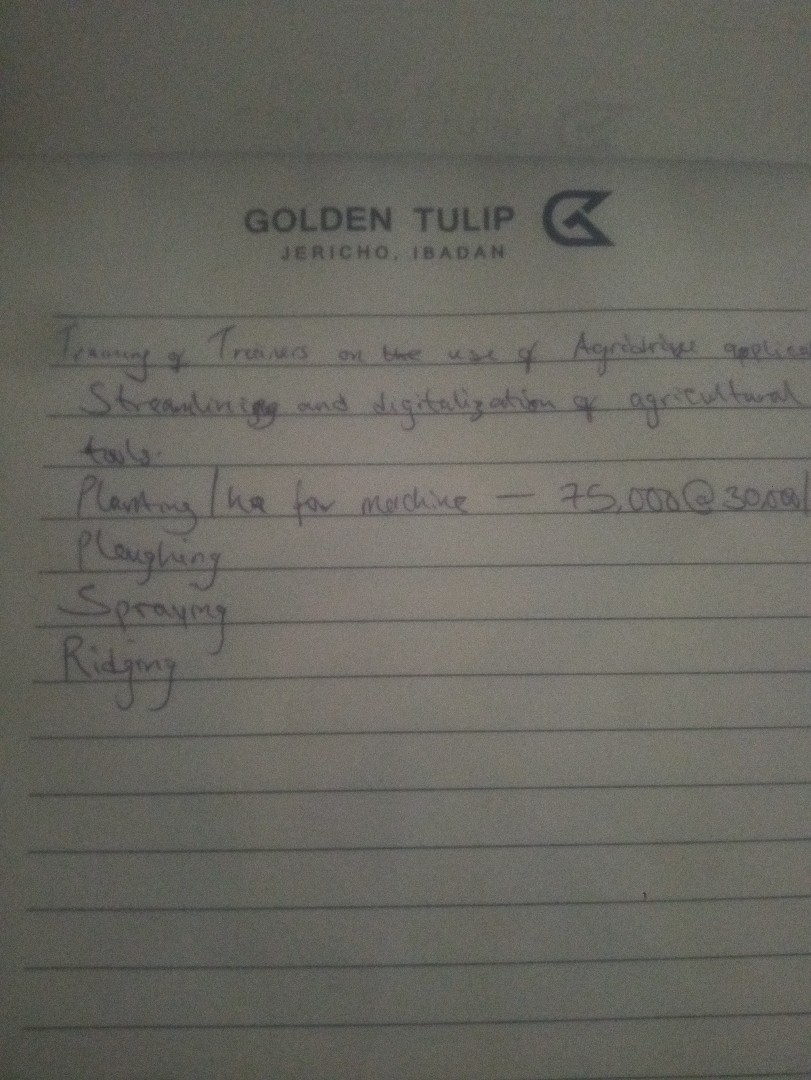 GOLDEN TULIP
JERICHO, IBADAN
Training of Trainers on the use of Agridrive
Streamlining and digitalization of agricultural
tools.
Planting/ha for machine — 75,000@
Ploughing
Spraying
Ridging